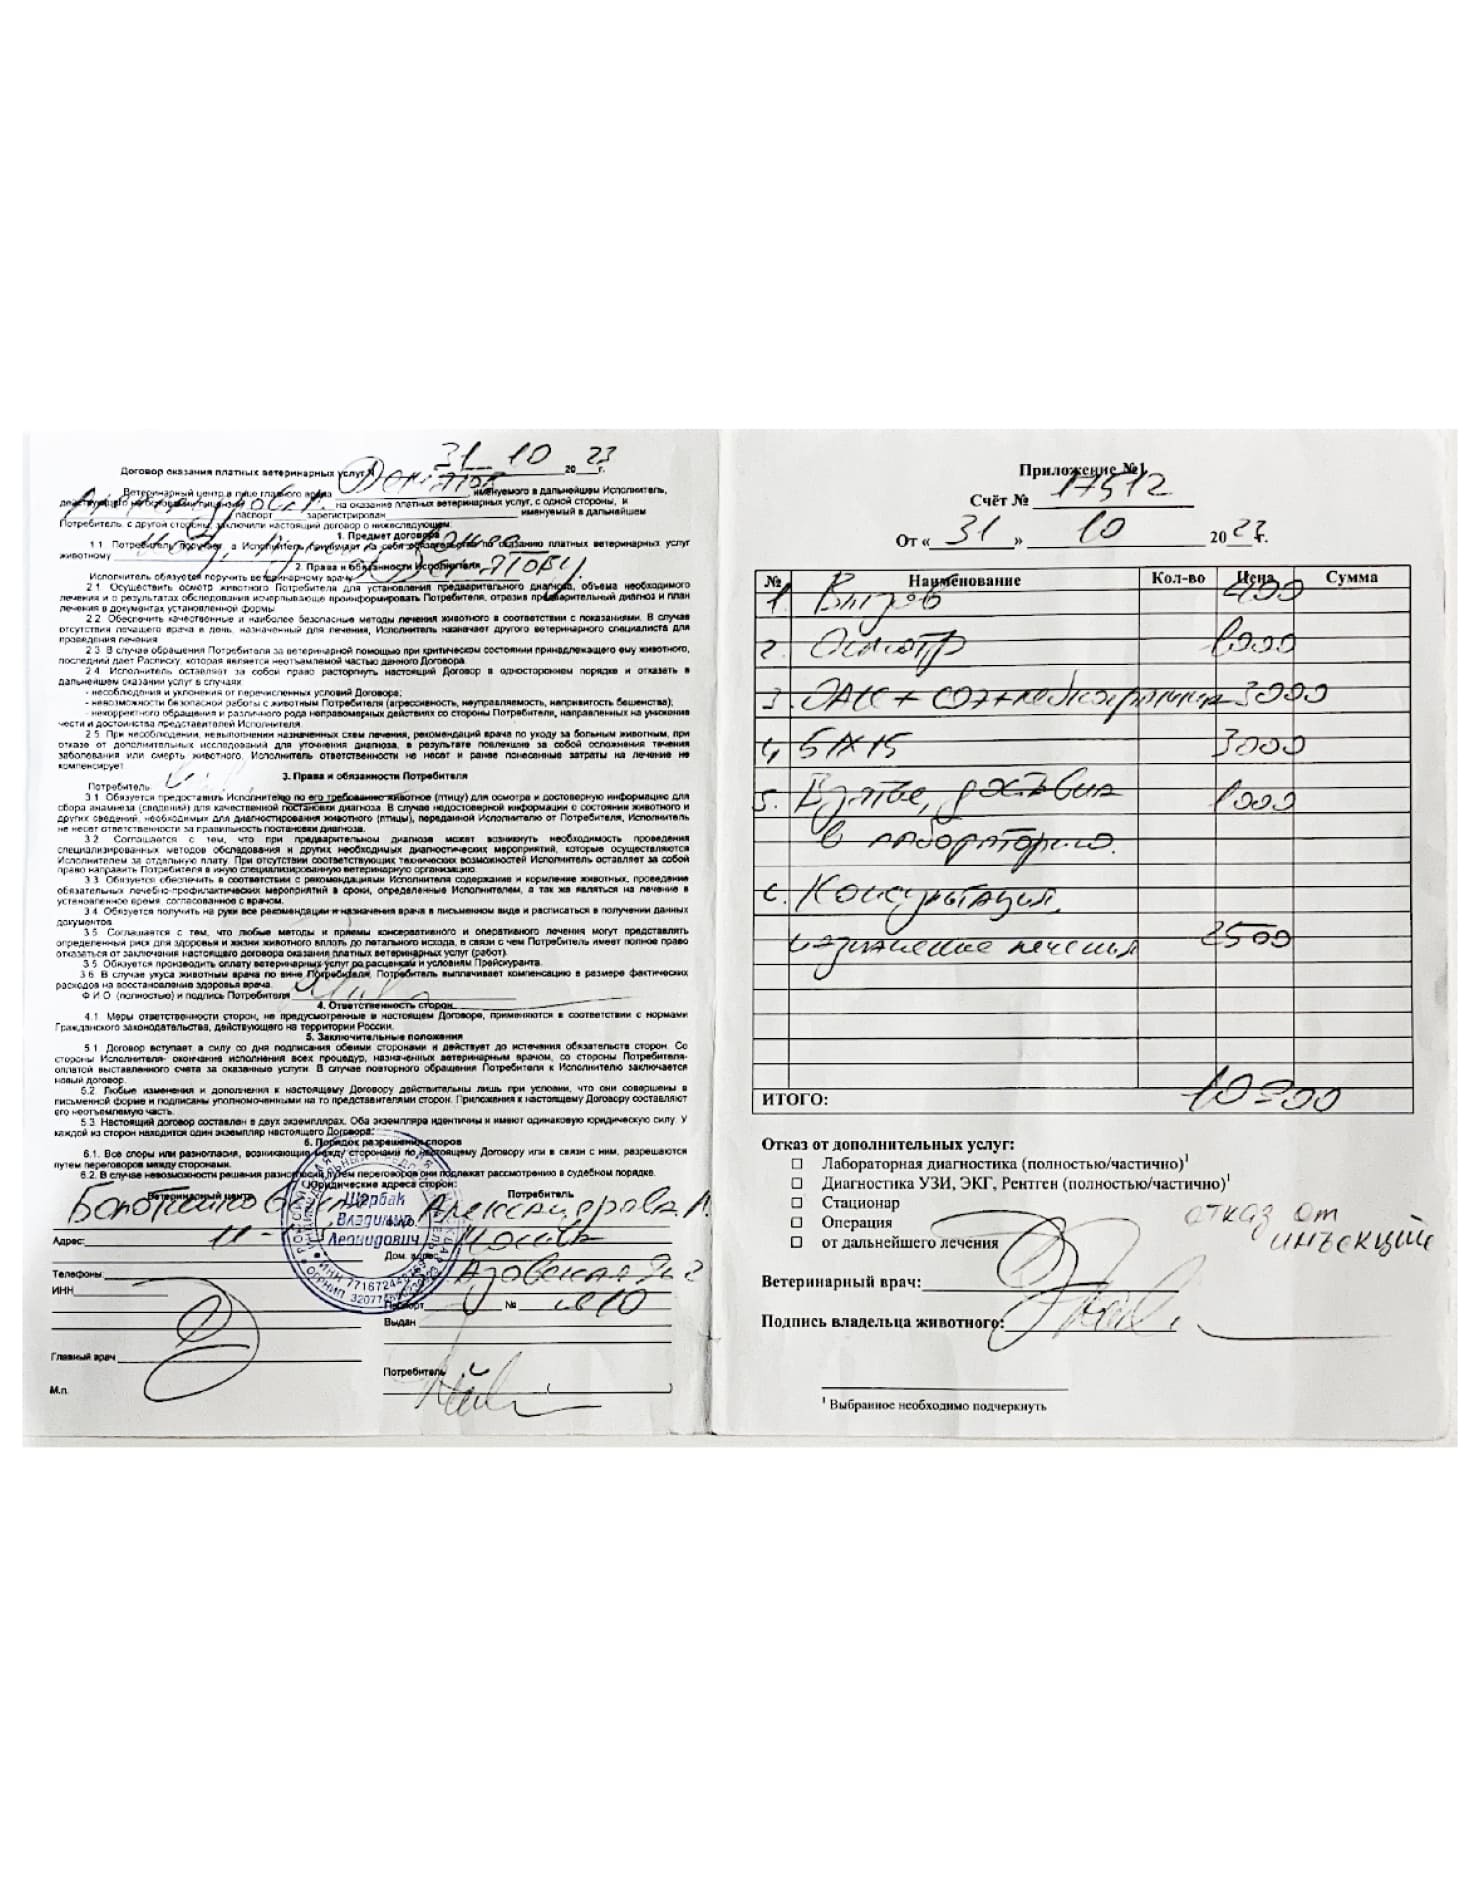 Договор оказания платных ветеринарных услуг 31 10 20 23 г.
Ветеринарный центр в лице главного врача именуемого в дальнейшем Исполнитель,
действующего на основании лицензии на оказание платных ветеринарных услуг, с одной стороны, и
паспорт зарегистрирован именуемый в дальнейшем
Потребитель, с другой стороны, заключили настоящий договор о нижеследующем:
1. Предмет договора
1.1. Потребитель поручает, а Исполнитель принимает на себя обязательства по оказанию платных ветеринарных услуг
животному
2. Права и обязанности Исполнителя
Исполнитель обязуется поручить ветеринарному врачу
2.1. Осуществить осмотр животного Потребителя для установления предварительного диагноза, объема необходимого
лечения и о результатах обследования исчерпывающе проинформировать Потребителя, отразив предварительный диагноз и план
лечения в документах установленной формы
2.2. Обеспечить качественные и наиболее безопасные методы лечения животного в соответствии с показаниями. В случае
отсутствия лечащего врача в день, назначенный для лечения, Исполнитель назначает другого ветеринарного специалиста для
проведения лечения
2.3. В случае обращения Потребителя за ветеринарной помощью при критическом состоянии принадлежащего ему животного,
последний дает Расписку, которая является неотъемлемой частью данного Договора.
2.4. Исполнитель оставляет за собой право расторгнуть настоящий Договор в одностороннем порядке и отказать в
дальнейшем оказании услуг в случаях:
- несоблюдения и уклонения от перечисленных условий Договора;
- невозможности безопасной работы с животным Потребителя (агрессивность, неуправляемость, непривитость бешенства);
- некорректного обращения и различного рода неправомерных действиях со стороны Потребителя, направленных на унижение
чести и достоинства представителей Исполнителя.
2.5. При несоблюдении, невыполнении назначенных схем лечения, рекомендаций врача по уходу за больным животным, при
отказе от дополнительных исследований для уточнения диагноза, в результате повлекшие за собой осложнения течения
заболевания или смерть животного, Исполнитель ответственности не несет и ранее понесенные затраты на лечение не
компенсирует
3. Права и обязанности Потребителя
Потребитель
3.1. Обязуется предоставить Исполнителю по его требованию животное (птицу) для осмотра и достоверную информацию для
сбора анамнеза (сведений) для качественной постановки диагноза. В случае недостоверной информации о состоянии животного и
других сведений, необходимых для диагностирования животного (птицы), переданной Исполнителю от Потребителя, Исполнитель
не несет ответственности за правильность постановки диагноза.
3.2. Соглашается с тем, что при предварительном диагнозе может возникнуть необходимость проведения
специализированных методов обследования и других необходимых диагностических мероприятий, которые осуществляются
Исполнителем за отдельную плату. При отсутствии соответствующих технических возможностей Исполнитель оставляет за собой
право направить Потребителя в иную специализированную ветеринарную организацию.
3.3. Обязуется обеспечить в соответствии с рекомендациями Исполнителя содержание и кормление животных, проведение
обязательных лечебно-профилактических мероприятий в сроки, определенные Исполнителем, а так же являться на лечение в
установленное время, согласованное с врачом.
3.4. Обязуется получить на руки все рекомендации и назначения врача в письменном виде и расписаться в получении данных
документов.
3.5. Соглашается с тем, что любые методы и приемы консервативного и оперативного лечения могут представлять
определенный риск для здоровья и жизни животного вплоть до летального исхода, в связи с чем Потребитель имеет полное право
отказаться от заключения настоящего договора оказания платных ветеринарных услуг (работ).
3.5. Обязуется производить оплату ветеринарных услуг по расценкам и условиям Прейскуранта.
3.6. В случае укуса животным врача по вине Потребителя, Потребитель выплачивает компенсацию в размере фактических
расходов на восстановление здоровья врача.
Ф.И.О. (полностью) и подпись Потребителя
4. Ответственность сторон
4.1. Меры ответственности сторон, не предусмотренные в настоящем Договоре, применяются в соответствии с нормами
Гражданского законодательства, действующего на территории России.
5. Заключительные положения
5.1. Договор вступает в силу со дня подписания обеими сторонами и действует до истечения обязательств сторон. Со
стороны Исполнителя- окончание исполнения всех процедур, назначенных ветеринарным врачом, со стороны Потребителя-
оплатой выставленного счета за оказанные услуги. В случае повторного обращения Потребителя к Исполнителю заключается
новый договор.
5.2. Любые изменения и дополнения к настоящему Договору действительны лишь при условии, что они совершены в
письменной форме и подписаны уполномоченными на то представителями сторон. Приложения к настоящему Договору составляют
его неотъемлемую часть.
5.3. Настоящий договор составлен в двух экземплярах. Оба экземпляра идентичны и имеют одинаковую юридическую силу. У
каждой из сторон находится один экземпляр настоящего Договора.
6. Порядок разрешения споров
6.1. Все споры или разногласия, возникающие между сторонами по настоящему Договору или в связи с ним, разрешаются
путем переговоров между сторонами.
6.2. В случае невозможности решения разногласий путем переговоров они подлежат рассмотрению в судебном порядке.
Юридические адреса сторон:
Ветеринарный центр
Потребитель
Щербак
Владимир
Леонидович
Александрова А.
Адрес:
Дом. адрес
Москва
Азовская
Телефоны:
ИНН
Паспорт №
Выдан
Главный врач
Потребитель
М.п.
Приложение №1
Счёт № 17512
От « 31 » 10 20 23 г.
№ Наименование Кол-во Цена Сумма
1. Вызов 400
2. Осмотр 1000
3. ОАК + СОЭ + 3000
4. БАХ 15 3000
5. Взятие, доставка 1000
в лабораторию.
6. Консультация,
назначение лечения 2500
ИТОГО: 10900
Отказ от дополнительных услуг:
☐ Лабораторная диагностика (полностью/частично)¹
☐ Диагностика УЗИ, ЭКГ, Рентген (полностью/частично)¹
☐ Стационар
☐ Операция
☐ от дальнейшего лечения
отказ от
инъекций
Ветеринарный врач:
Подпись владельца животного:
¹ Выбранное необходимо подчеркнуть